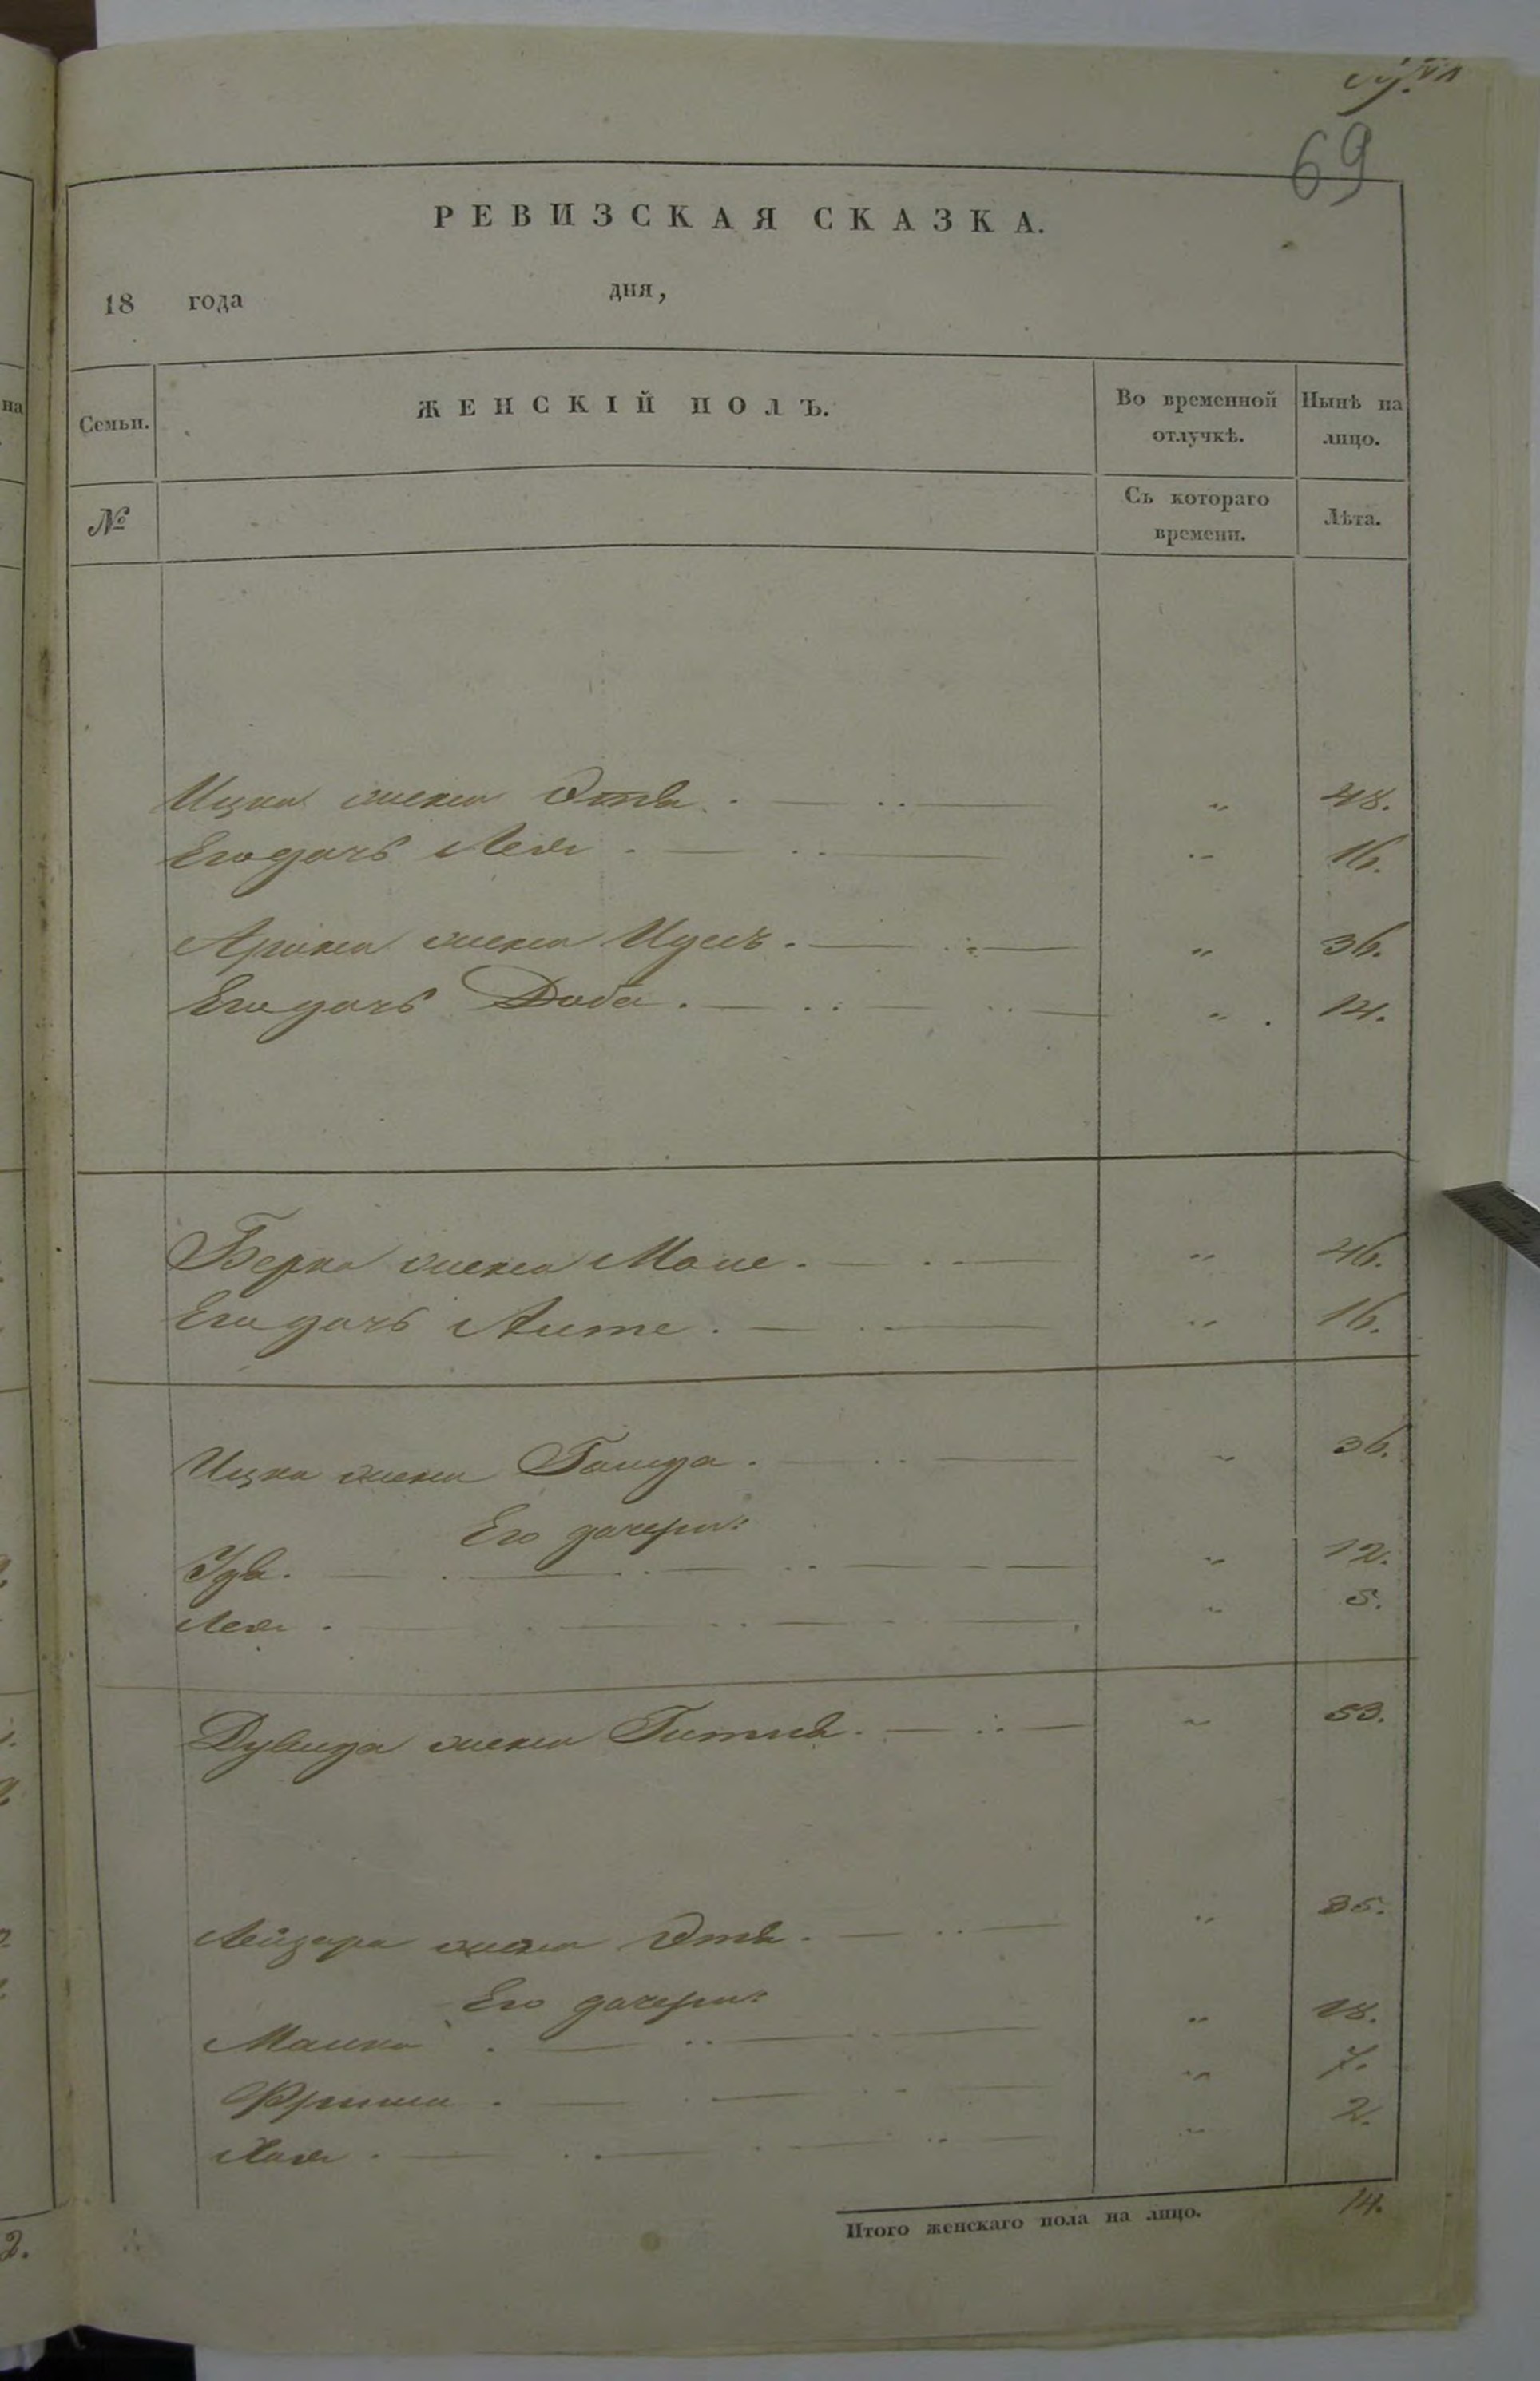 69
РЕВИЗСКАЯ СКАЗКА.
18 года дня,
Семьи. ЖЕНСКІЙ ПОЛЪ. Во временной отлучкѣ. Нынѣ на лицо.
№ Съ котораго времени. Лѣта.
Ицка жена Этя . — .. — „ 48.
Его дочь Лея . — .. — „ 16.
Арона жена Идесъ . — .. — „ 36.
Его дочь Доба . — .. — .. — „ 14.
Берка жена Мале . — .. — „ 46.
Его дочь Лите . — .. — „ 16.
Ицка жена — .. — „ 36.
Его дочери:
— .. — „ 12.
Лея . — .. — „ 5.
Дувида жена Гитля . — .. — „ 53.
Лейзара жена Этя . — .. — „ 35.
Его дочери:
Малка . — .. — „ 18.
— .. — „ 7.
Хая . — .. — „ 2.
Итого женскаго пола на лицо. 14.